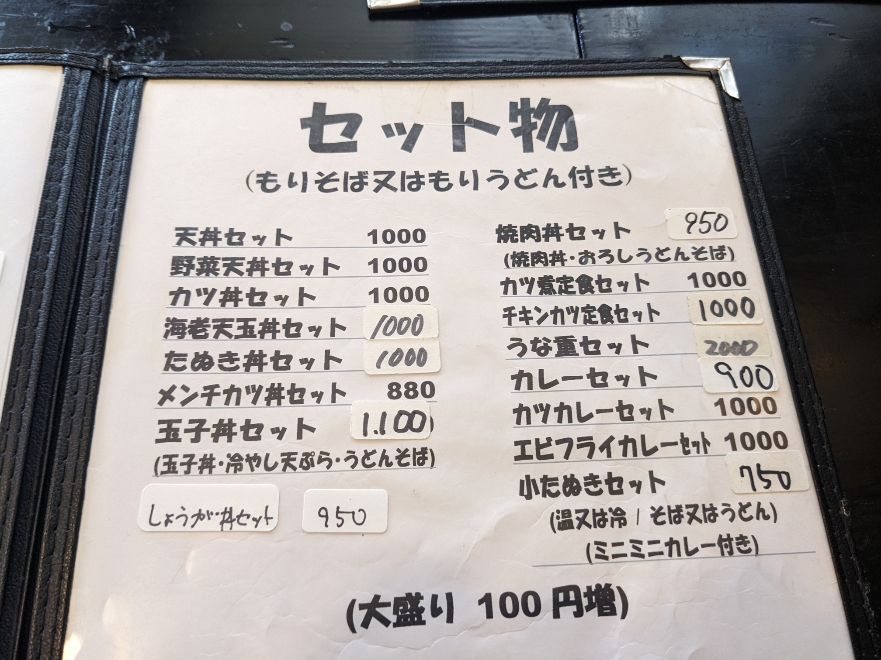 セット物
(もりそば又はもりうどん付き)
天丼セット 1000
野菜天丼セット 1000
カツ丼セット 1000
海老天玉丼セット 1000
たぬき丼セット 1000
メンチカツ丼セット 880
玉子丼セット 1.100)
(玉子丼・冷やし天ぷら・うどんそば)
しょうが丼セット 950
焼肉丼セット 950
(焼肉丼・おろしうどんそば)
カツ煮定食セット 1000
チキンカツ定食セット 1000
うな重セット 2000
カレーセット 900
カツカレーセット 1000
エビフライカレーセット 1000
小たぬきセット 750
(温又は冷 / そば又はうどん)
(ミニミニカレー付き)
(大盛り 100円増)